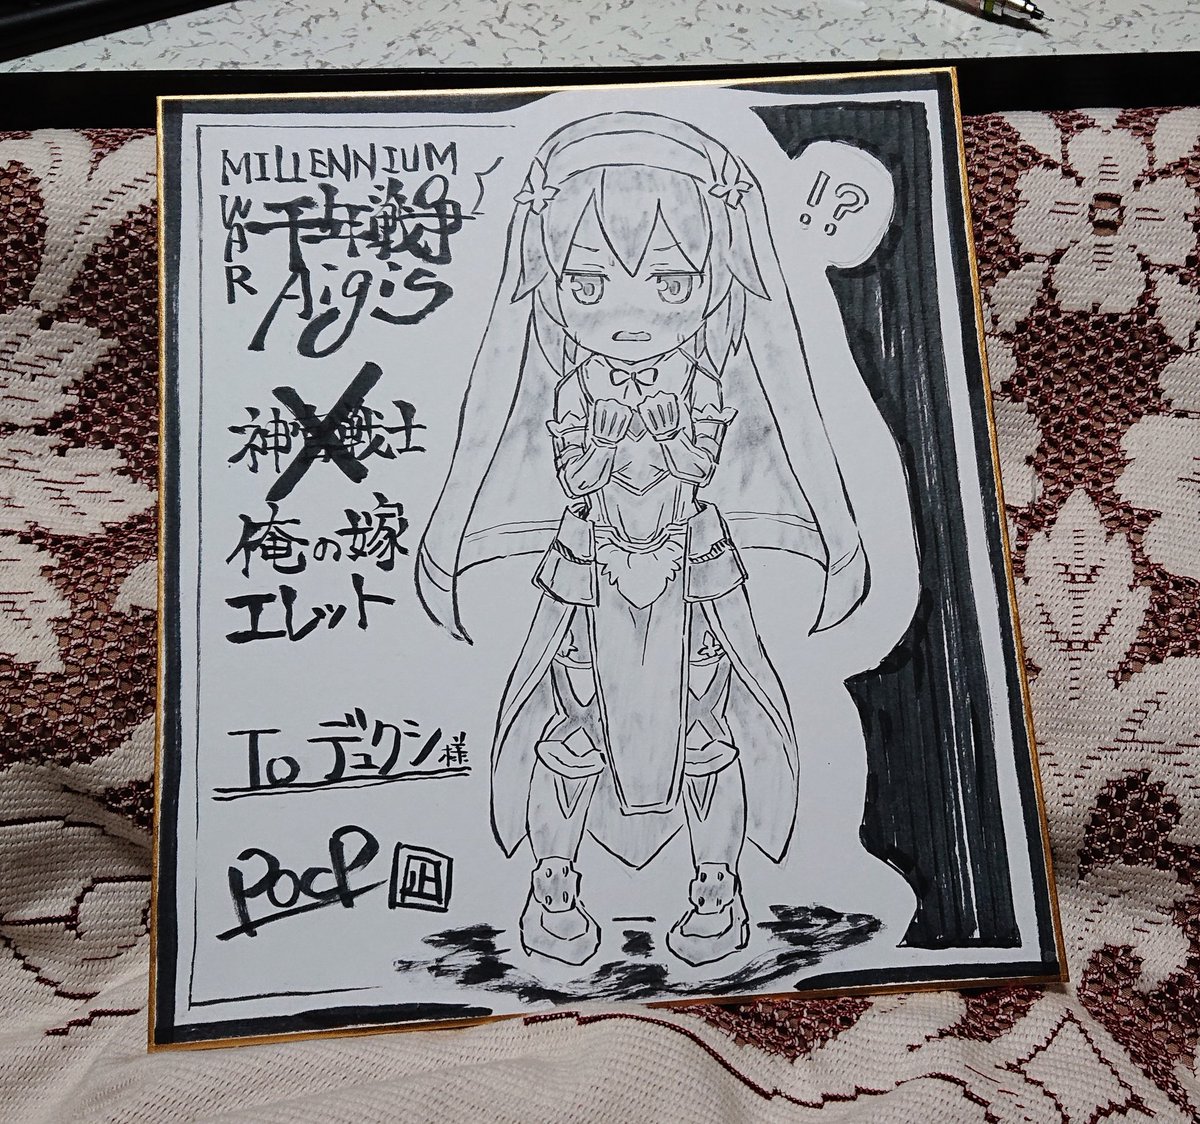 MILLENNIUM
WAR
千年戦争
Aigis
神官戦士
俺の嫁
エレット
To デュクシ様
PocP
凪
!?